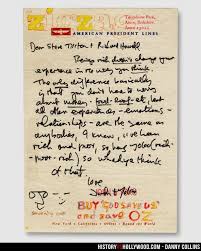 AMERICAN PRESIDENT LINES
Dear Steve Tilston & Richard Howell
Being rich doesn't change your
experience in the way you think.
The only difference basically
is that you don't have to worry
about money - food - roof - etc, but
all other experiences - emotions -
relationships - are the same as
anybodies, I know, I've been
rich and poor, so has Yoko (rich
- poor - rich) so whadya think
of that.
love
BUY GOD SAVE US
OZ
HISTORYvsHOLLYWOOD.COM - DANNY COLLINS